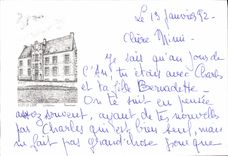 Le 13 Janvier 92-
Chère Mimi.
Je sais qu'au jour de
l'An, tu étais avec Charles
et ta fille Bernadette-
On te suit en pensée
assez souvent, ayant de tes nouvelles
par Charles qui est bien seul, mais
ne fait pas grand'chose pour que